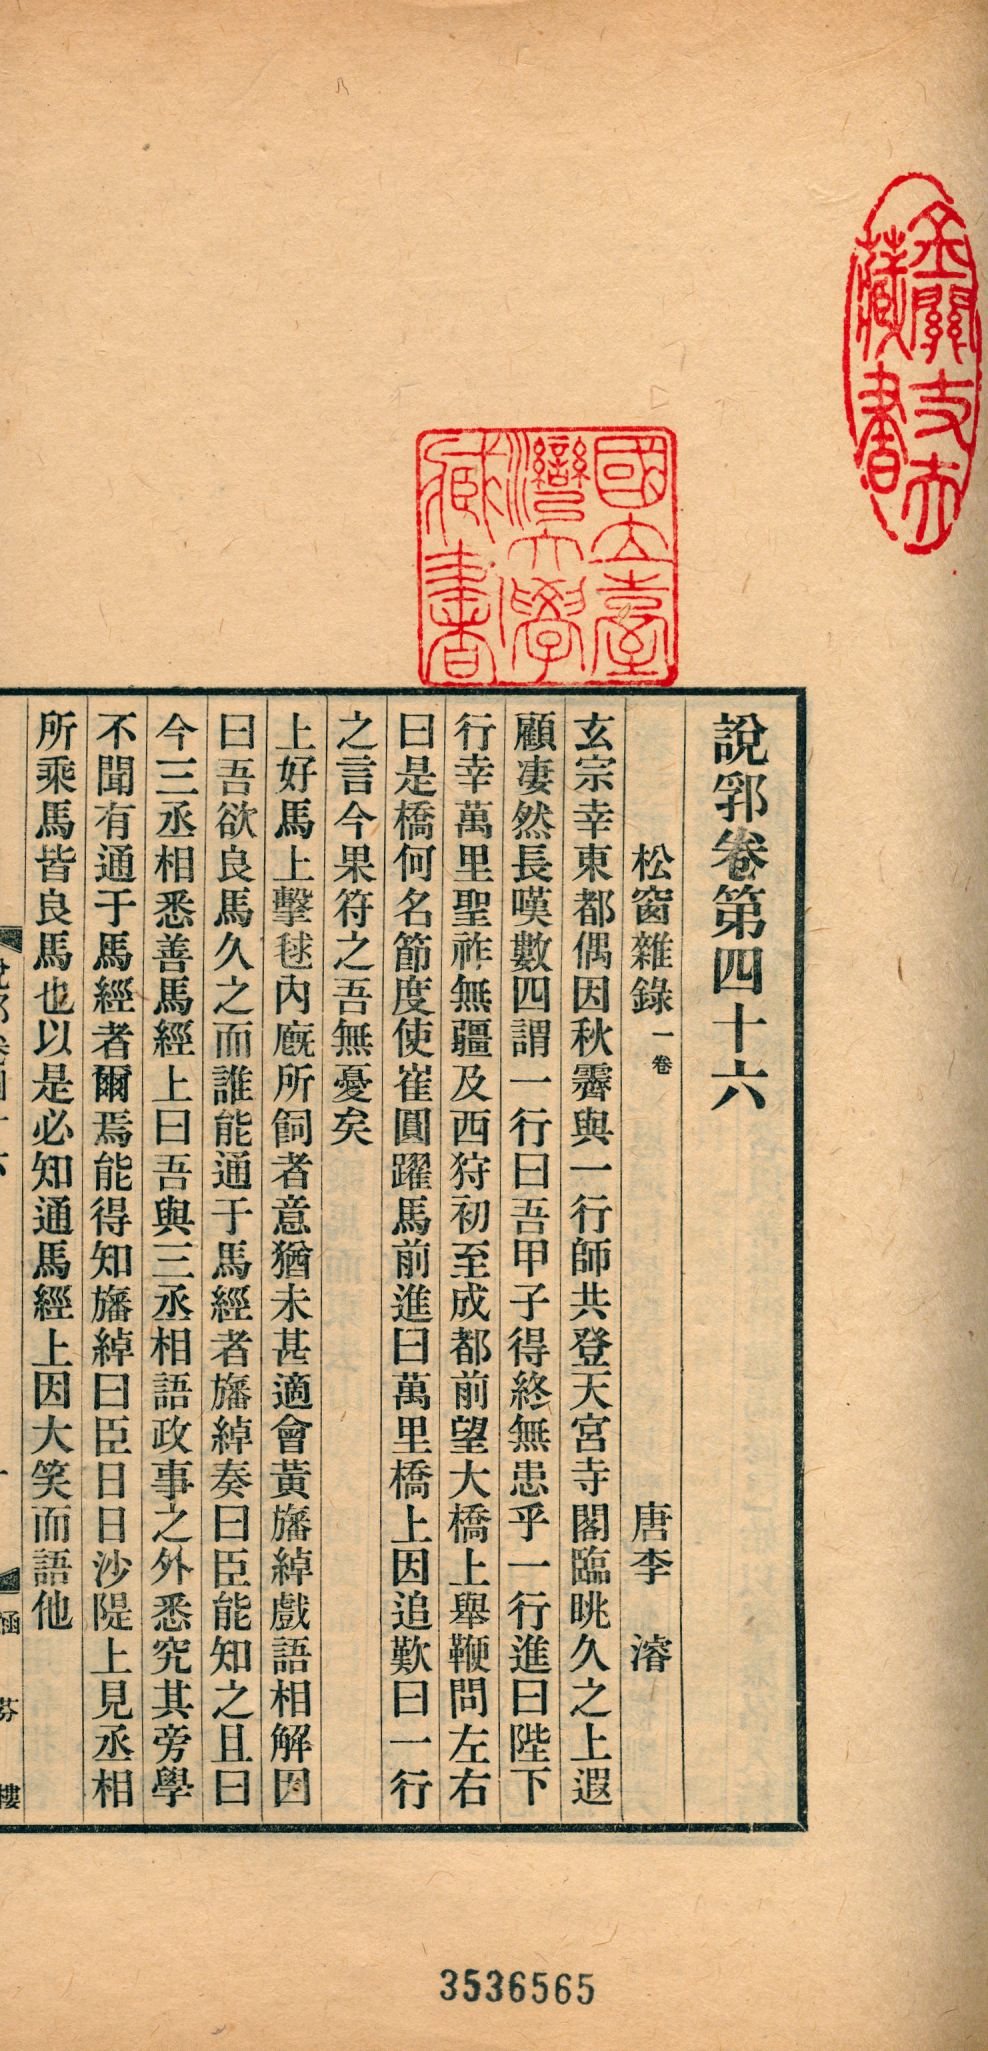 說郛卷第四十六
松窗雜錄一卷　唐李　濬
玄宗幸東都偶因秋霽與一行師共登天宮寺閣臨眺久之上遐
顧凄然長嘆數四謂一行曰吾甲子得終無患乎一行進曰陛下
行幸萬里聖祚無疆及西狩初至成都前望大橋上舉鞭問左右
曰是橋何名節度使崔圓躍馬前進曰萬里橋上因追歎曰一行
之言今果符之吾無憂矣
上好馬上擊毬內廐所飼者意猶未甚適會黃旛綽戲語相解因
曰吾欲良馬久之而誰能通于馬經者旛綽奏曰臣能知之且曰
今三丞相悉善馬經上曰吾與三丞相語政事之外悉究其旁學
不聞有通于馬經者爾焉能得知旛綽曰臣日日沙隄上見丞相
所乘馬皆良馬也以是必知通馬經上因大笑而語他
國立臺
灣大學
藏書
藏書
3536565